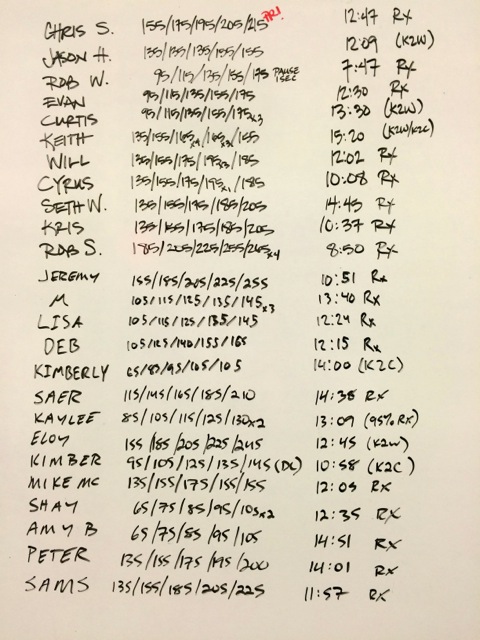 CHRIS S. 155/175/195/205/215 PR! 12:47 RX
JASON H. 135/135/135/155/155 12:09 (K2W)
ROB W. 95/115/135/155/175 PAUSE 1SEC 7:47 RX
EVAN 95/115/135/155/175 12:30 RX
CURTIS 95/115/135/155/175x3 13:30 (K2W)
KEITH 135/155/165x4/165x3/155 15:20 (K2W/K2C)
WILL 135/155/175/195x3/185 12:02 RX
CYRUS 135/155/175/195x1/185 10:08 RX
SETH W. 135/155/175/185/205 14:45 RX
KRIS 135/155/175/185/205 10:37 RX
ROB S. 185/205/225/255/265x4 8:50 RX
JEREMY 155/185/205/225/255 10:51 Rx
M 105/115/125/135/145x3 13:40 Rx
LISA 105/115/125/135/145 12:24 Rx
DEB 105/125/140/155/165 12:15 Rx
KIMBERLY 65/83/95/105/105 14:00 (K2C)
SAER 115/145/165/185/210 14:38 RX
KAYLEE 85/105/115/125/130x2 13:09 (95% RX)
ELOY 155/185/205/225/245 12:45 (K2W)
KIMBER 95/105/125/135/145 (DL) 10:58 (K2C)
MIKE MC 135/155/175/155/155 12:05 RX
SHAY 65/75/85/95/105x2 12:35 RX
AMY B 65/75/85/95/105 14:51 RX
PETER 135/155/175/195/200 14:01 RX
SAMS 135/155/185/205/225 11:57 RX